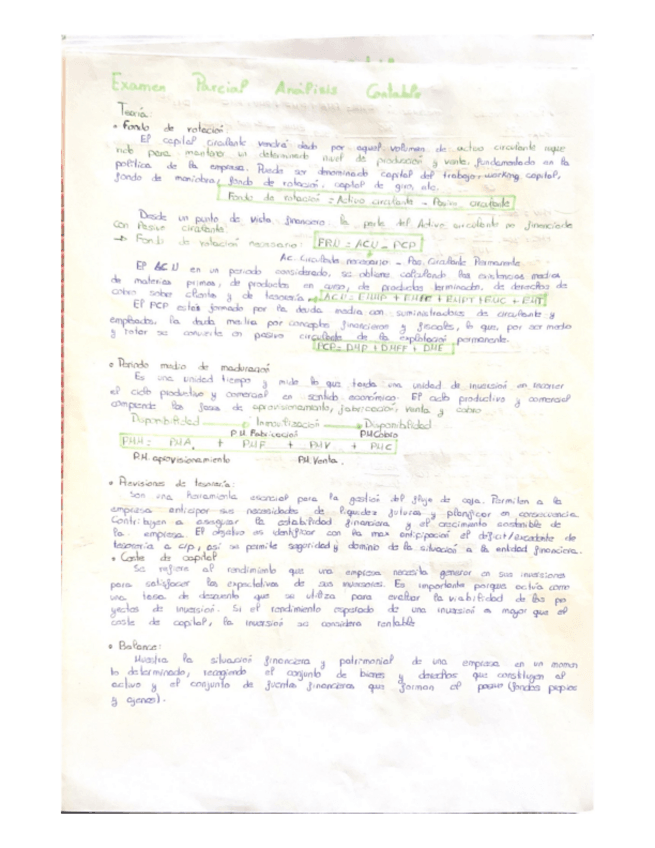 Examen Parcial Análisis Contable
Teoría
• Fondo de rotación
El capital circulante vendrá dado por aquel volumen de activo circulante reque
rido para mantener un determinado nivel de producción y venta, fundamentado en la
política de la empresa. Puede ser denominado capital del trabajo, working capital,
fondo de maniobra, fondo de rotación, capital de giro, etc.
Fondo de rotación = Activo circulante - Pasivo circulante
Desde un punto de vista financiero la parte del Activo circulante no financiada
con Pasivo circulante.
→ Fondo de rotación necesario: FRN = ACN - PCP
Ac. Circulante necesario - Pas. Circulante Permanente
El ACN en un periodo considerado, se obtiene calculando las existencias medias
de materias primas, de productos en curso, de productos terminados, de derechos de
cobro sobre clientes y de tesorería
El PCP estará formado por la deuda media con suministradores de circulante y
empleados, la deuda media por conceptos financieros y fiscales, lo que, por ser medio
y rotar se convierte en pasivo circulante de la explotación permanente.
PCP = DMP + DMFF + DME
• Periodo medio de maduración
Es una unidad tiempo y mide lo que tarda una unidad de inversión en recorrer
el ciclo productivo y comercial en sentido económico. El ciclo productivo y comercial
comprende las fases de aprovisionamiento, fabricación, venta y cobro.
Disponibilidad → Inmovilización → Disponibilidad
P.M. Fabricación P.M Cobro
PMM = PMA + PMF + PMV + PMC
P.M. aprovisionamiento P.M. Venta.
• Previsiones de tesorería:
Son una herramienta esencial para la gestión del flujo de caja. Permiten a la
empresa anticipar sus necesidades de liquidez futuras y planificar en consecuencia.
Contribuyen a asegurar la estabilidad financiera y el crecimiento sostenible de
la empresa. El objetivo es identificar con la max anticipación el déficit/excedente de
tesorería a c/p, así se permite seguridad y dominio de la situación a la entidad financiera.
• Coste de capital
Se refiere al rendimiento que una empresa necesita generar en sus inversiones
para satisfacer las expectativas de sus inversores. Es importante porque actúa como
una tasa de descuento que se utiliza para evaluar la viabilidad de los pro
yectos de inversión. Si el rendimiento esperado de una inversión es mayor que el
coste de capital, la inversión se considera rentable
• Balance:
Muestra la situación financiera y patrimonial de una empresa en un momen
to determinado, recogiendo el conjunto de bienes y derechos que constituyen el
activo y el conjunto de fuentes financieras que forman el pasivo (fondos propios
y ajenos).